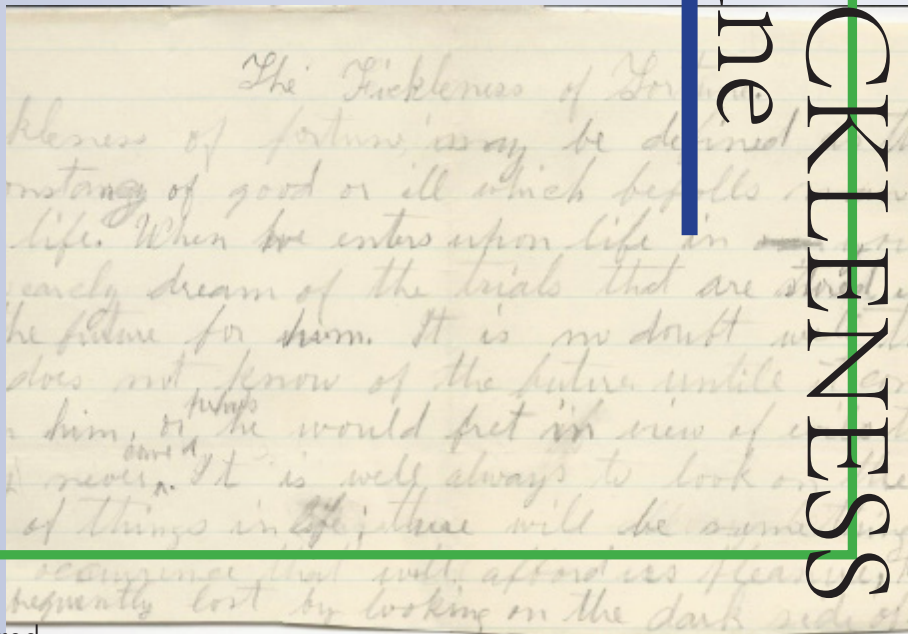 The Fickleness of Fortune.
kleness of fortune may be defined as th
onstancy of good or ill which befalls
life. When he enters upon life in you
earcly dream of the trials that are stored
he future for him. It is no doubt well
does not know of the future untile it com
him, or perhaps he would fret in view of
never owned. It is well always to look on the
of things in life; there will be something
occurrence that will afford us pleasure
requently lost by looking on the dark side of
ne
CKLENESS